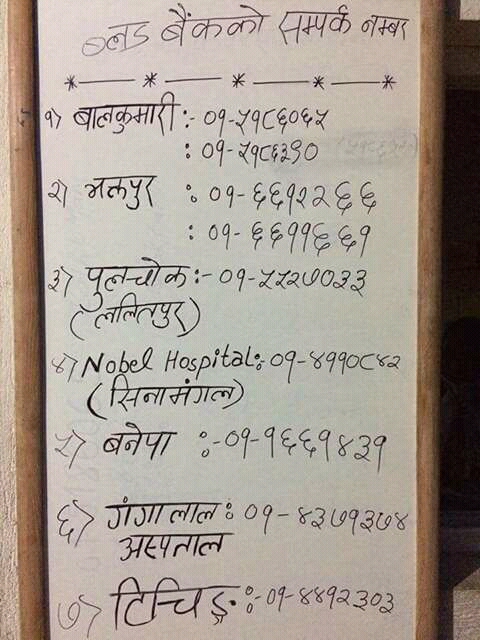 ब्लड बैंकको सम्पर्क नम्बर
१) बालकुमारी :- ०१-५१८६०६५
: ०१-५१८६३१०
२) भक्तपुर : ०१-६६१२२६६
: ०१-६६११६६१
३) पुलचोक :- ०१-५५२७०३३
(ललितपुर)
४) Nobel Hospital:- ०१-४११०८४२
(सिनामंगल)
५) बनेपा :-०१-१६६१४३१
६) गंगालाल : ०१-४३७१३७४
अस्पताल
७) टिचिङ्ग :-०१-४४१२३०३